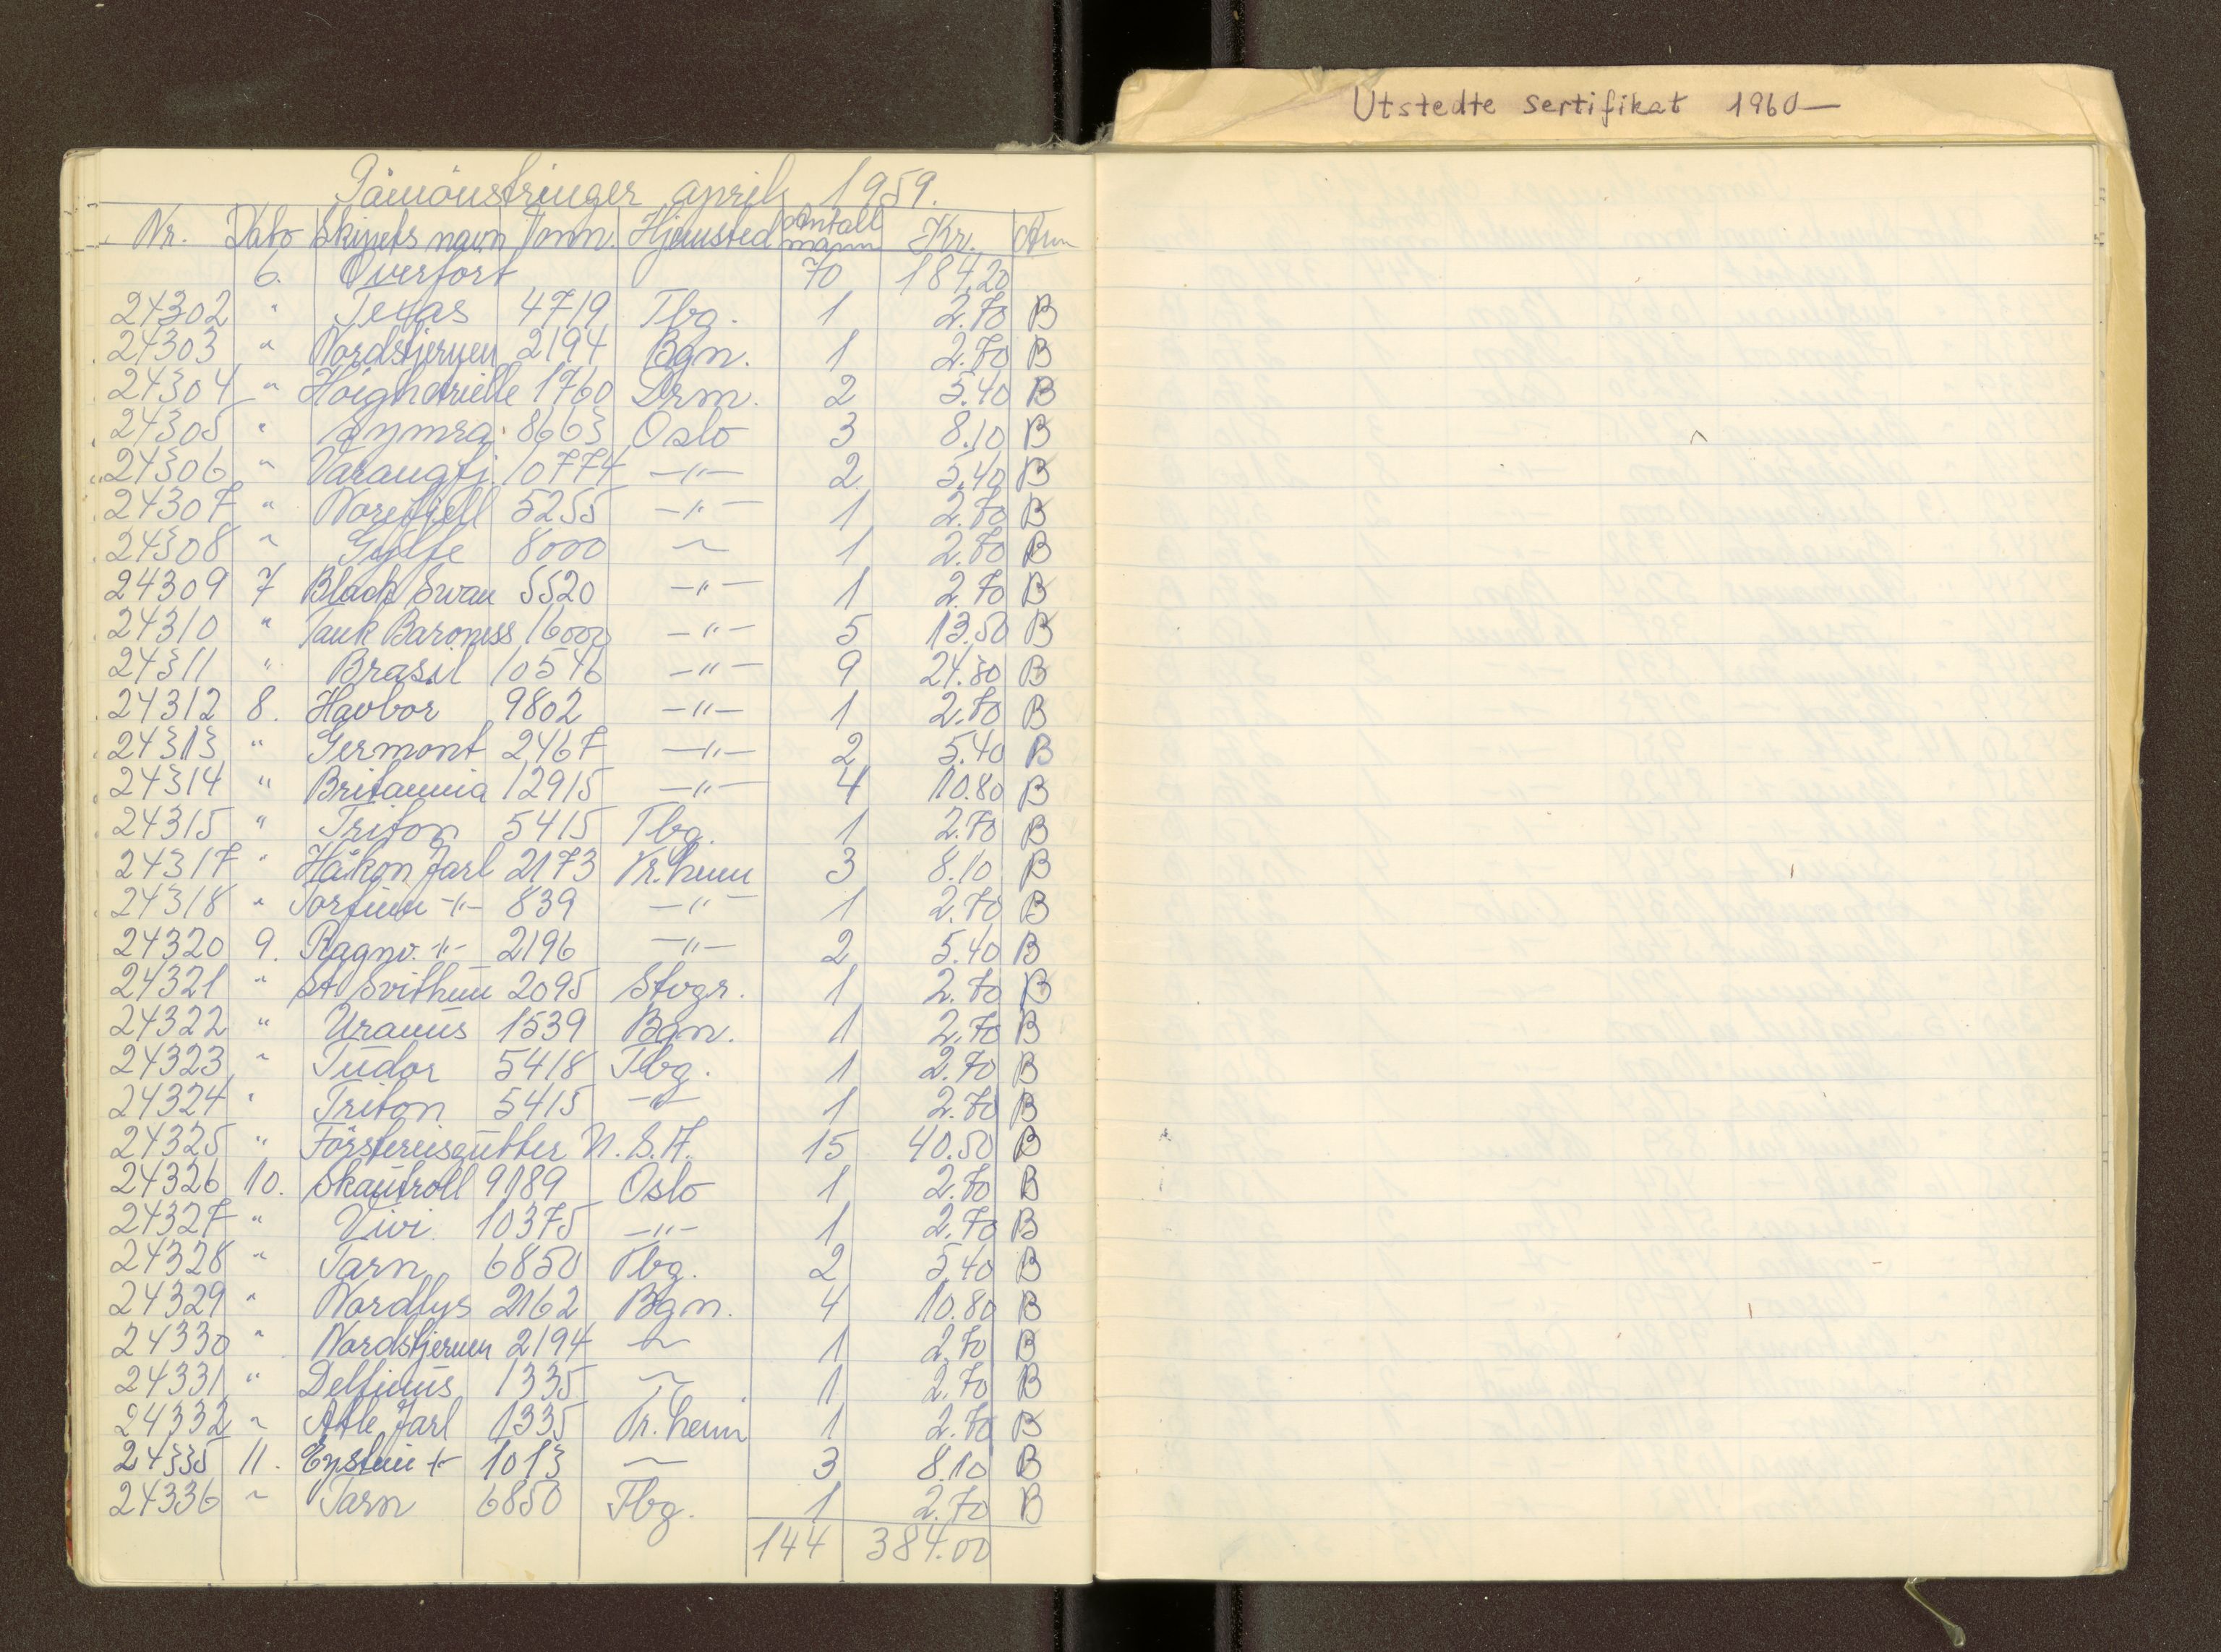 Utstedte sertifikat 1960—
Påmönstringer april 1959.
Nr. Dato Skipets navn Tonn. Hjemsted Antall mann Kr. Anm
6. Overfört 70 184.20
24302 " Texas 4719 Tbg. 1 2.70 B
24303 " Nordstjernen 2194 Bgn. 1 2.70 B
24304 " Höigh 1760 Drm. 2 5.40 B
24305 " Gymra 8663 Oslo 3 8.10 B
24306 " Varangfj. 10774 —"— 2 5.40 B
24307 " Norefjell 5255 —"— 1 2.70 B
24308 " Gylfe 8000 ~ 1 2.70 B
24309 7 Black Swan 5520 —"— 1 2.70 B
24310 " Tank Baroness 16000 —"— 5 13.50 B
24311 " Brasil 10546 —"— 9 24.30 B
24312 8. Havbor 9802 —"— 1 2.70 B
24313 " Germont 2467 —"— 2 5.40 B
24314 " Britannia 12915 —"— 4 10.80 B
24315 " Triton 5415 Tbg. 1 2.70 B
24317 " Håkon Jarl 2173 Tr.heim 3 8.10 B
24318 " Torfinn —"— 839 —"— 1 2.70 B
24320 9. Ragnv. —"— 2196 —"— 2 5.40 B
24321 " St Svithun 2095 Stvgr. 1 2.70 B
24322 " Uranus 1539 Bgn. 1 2.70 B
24323 " Tudor 5418 Tbg. 1 2.70 B
24324 " Triton 5415 —"— 1 2.70 B
24325 " Förstereisgutter N.S.A. 15 40.50 B
24326 10. Skautroll 9189 Oslo 1 2.70 B
24327 " Vivi 10375 —"— 1 2.70 B
24328 " Tarn 6850 Tbg. 2 5.40 B
24329 " Nordlys 2162 Bgn. 4 10.80 B
24330 " Nordstjernen 2194 ~ 1 2.70 B
24331 " Delfinus 1335 ~ 1 2.70 B
24332 " Atle Jarl 1335 Tr.heim 1 2.70 B
24335 11. Eystein —"— 1013 ~ 3 8.10 B
24336 " Tarn 6850 Tbg. 1 2.70 B
144 384.00